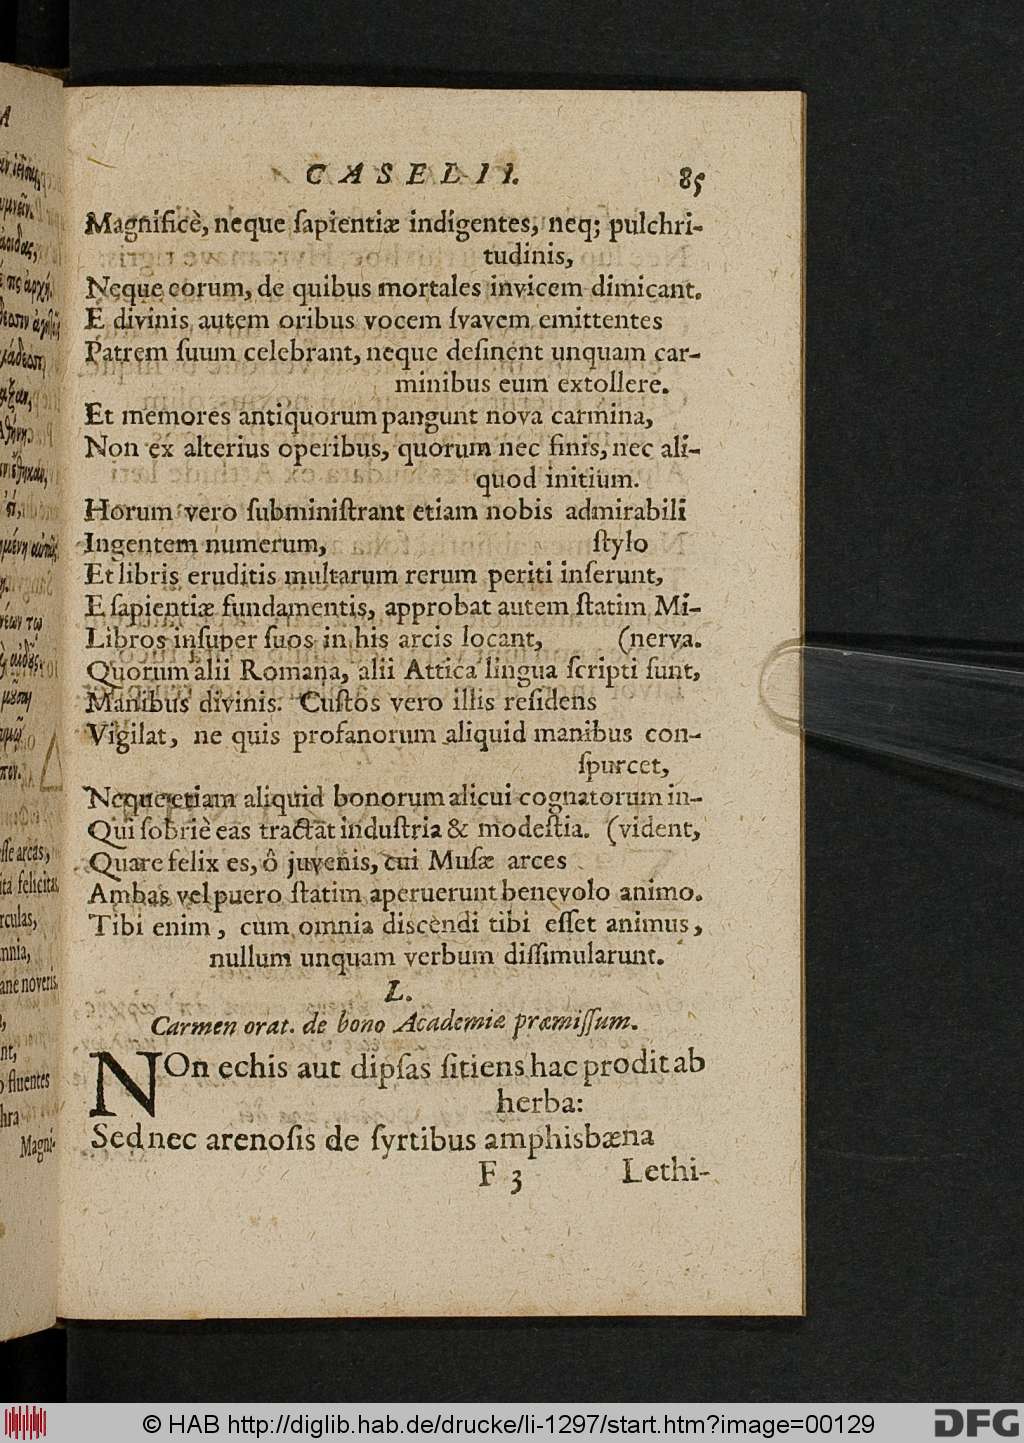 CASELII. 85
Magnificè, neque ſapientiæ indigentes, neq; pulchri-
tudinis,
Neque eorum, de quibus mortales invicem dimicant.
E divinis autem oribus vocem ſvavem emittentes
Patrem ſuum celebrant, neque deſinent unquam car-
minibus eum extollere.
Et memores antiquorum pangunt nova carmina,
Non ex alterius operibus, quorum nec finis, nec ali-
quod initium.
Horum vero ſubminiſtrant etiam nobis admirabili
Ingentem numerum, ſtylo
Et libris eruditis multarum rerum periti inſerunt,
E ſapientiæ fundamentis, approbat autem ſtatim Mi-
Libros inſuper ſuos in his arcis locant, (nerva.
Quorum alii Romana, alii Attica lingua ſcripti ſunt,
Manibus divinis. Cuſtos vero illis reſidens
Vigilat, ne quis profanorum aliquid manibus con-
ſpurcet,
Neque etiam aliquid bonorum alicui cognatorum in-
Qui ſobriè eas tractat induſtria & modeſtia. (vident,
Quare felix es, ô juvenis, cui Muſæ arces
Ambas vel puero ſtatim aperuerunt benevolo animo.
Tibi enim, cum omnia discendi tibi eſſet animus,
nullum unquam verbum diſſimularunt.
L.
Carmen orat. de bono Academiæ præmiſſum.
NOn echis aut dipſas ſitiens hac prodit ab
herba:
Sed nec arenoſis de ſyrtibus amphisbæna
F 3 Lethi-
eſſe arcas,
ita felicitas,
rculas,
mnia,
ane noveris,
nt,
o fluentes
hra
Magni-
© HAB http://diglib.hab.de/drucke/li-1297/start.htm?image=00129
DFG